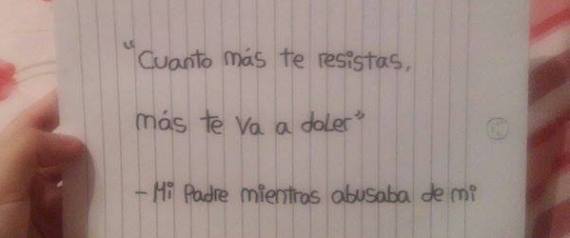 "Cuanto más te resistas,
más te va a doler"
- Mi Padre mientras abusaba de mi